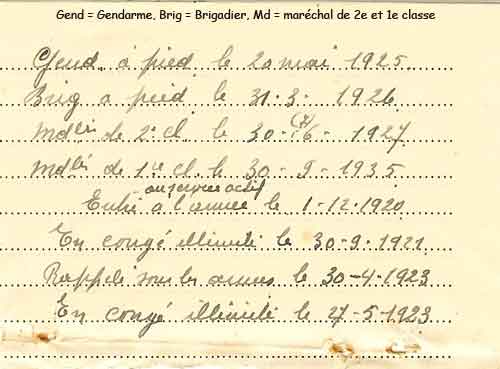 Gend = Gendarme, Brig = Brigadier, Md = maréchal de 2e et 1e classe
Gend. à pied le 20 mai 1925
Brig à pied le 31-3- 1926
Md de 2e Cl. le 30- 6 - 1927
Md de 1re Cl. le 30 - 9 - 1935
au service actif
Entré à l'armée le 1-12-1920
En congé illimité le 30-9-1921
Rappelé sous les armes le 30-4-1923
En congé illimité le 27-5-1923